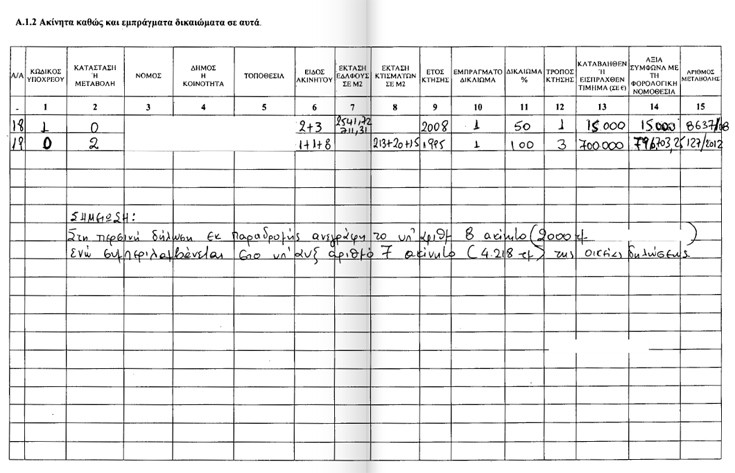 Α.1.2 Ακίνητα καθώς και εμπράγματα δικαιώματα σε αυτά.
Α/Α ΚΩΔΙΚΟΣ ΥΠΟΧΡΕΟΥ ΚΑΤΑΣΤΑΣΗ Ή ΜΕΤΑΒΟΛΗ ΝΟΜΟΣ ΔΗΜΟΣ Η ΚΟΙΝΟΤΗΤΑ ΤΟΠΟΘΕΣΙΑ ΕΙΔΟΣ ΑΚΙΝΗΤΟΥ ΕΚΤΑΣΗ ΕΔΑΦΟΥΣ ΣΕ Μ2 ΕΚΤΑΣΗ ΚΤΙΣΜΑΤΩΝ ΣΕ Μ2 ΕΤΟΣ ΚΤΗΣΗΣ ΕΜΠΡΑΓΜΑΤΟ ΔΙΚΑΙΩΜΑ ΔΙΚΑΙΩΜΑ % ΤΡΟΠΟΣ ΚΤΗΣΗΣ ΚΑΤΑΒΛΗΘΕΝ Ή ΕΙΣΠΡΑΧΘΕΝ ΤΙΜΗΜΑ (ΣΕ €) ΑΞΙΑ ΣΥΜΦΩΝΑ ΜΕ ΤΗ ΦΟΡΟΛΟΓΙΚΗ ΝΟΜΟΘΕΣΙΑ ΑΡΙΘΜΟΣ ΜΕΤΑΒΟΛΗΣ
. 1 2 3 4 5 6 7 8 9 10 11 12 13 14 15
18 1 0 2+3 2541,72 711,31 2008 1 50 1 15000 15000 8637/08
19 0 2 1+1+8 213+20+15 1995 1 100 3 700.000 796703,25 127/2012
ΣΗΜΕΙΩΣΗ:
Στη περσινή δήλωση εκ παραδρομής ανεγράφη το υπ' αριθμ 8 ακίνητο (2000 τμ )
ενώ συμπεριλαμβάνεται στο υπ' αυξ αριθμό 7 ακίνητο (4.218 τμ) της οικείας δηλώσεως